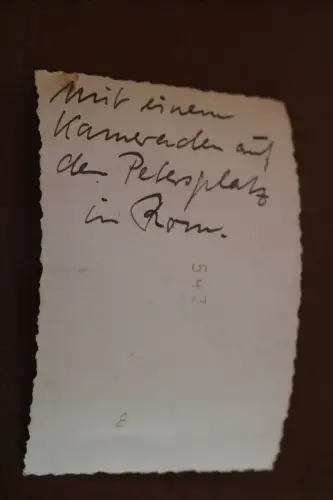 Mit einem
Kameraden auf
dem Petersplatz
in Rom.
543